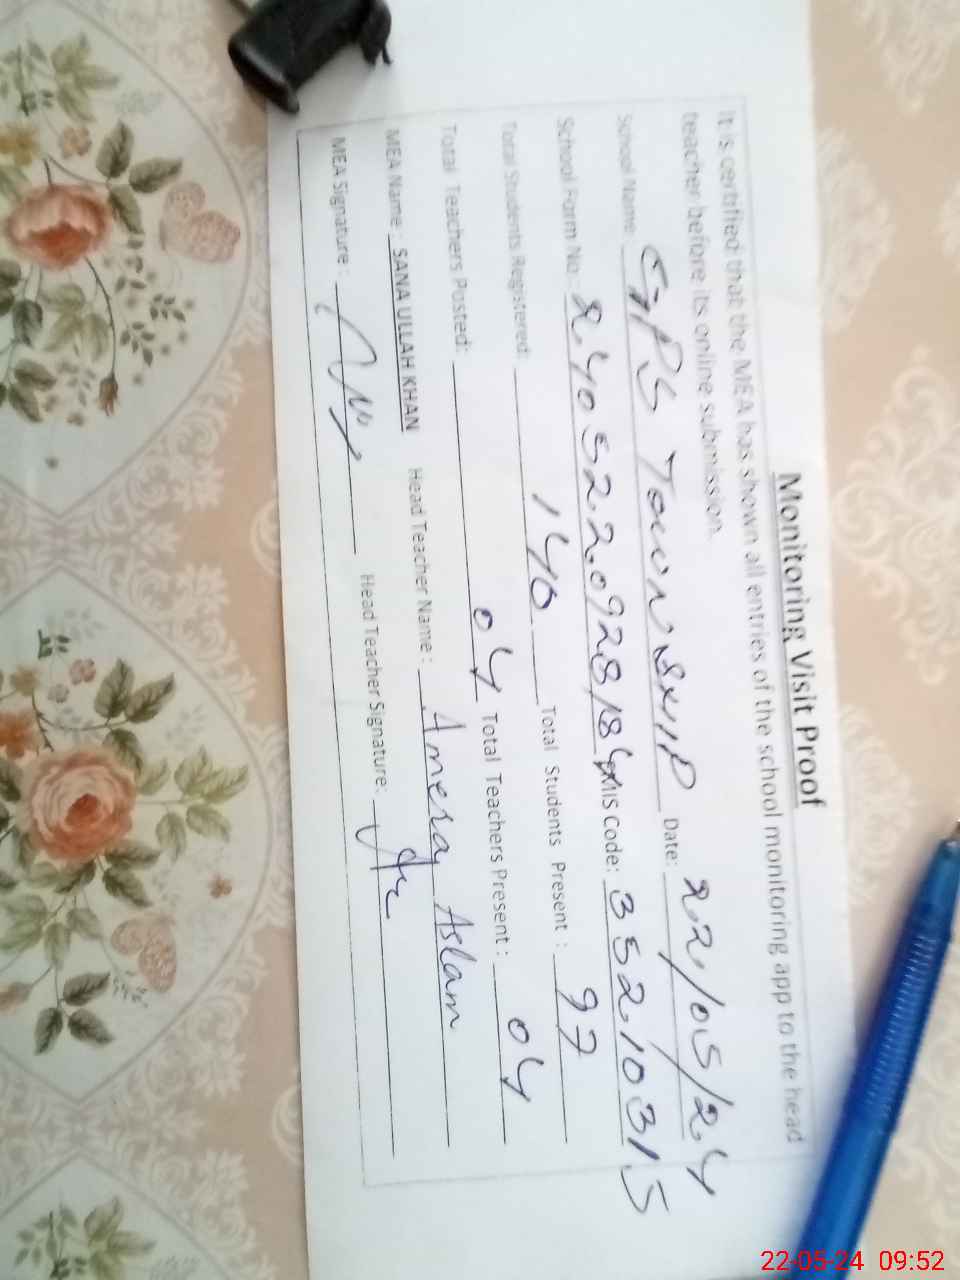 Monitoring Visit Proof
It is certified that the MEA has shown all entries of the school monitoring app to the head
teacher before its online submission.
School Name: GPS TOWNSHIP Date: 22/05/24
School Form No.: 2405220928184 EMIS Code: 35210315
Total Students Registered: 140 Total Students Present : 97
Total Teachers Posted: 04 Total Teachers Present : 04
MEA Name: SANA ULLAH KHAN Head Teacher Name : Amera Aslam
MEA Signature : Head Teacher Signature:
22-05-24 09:52